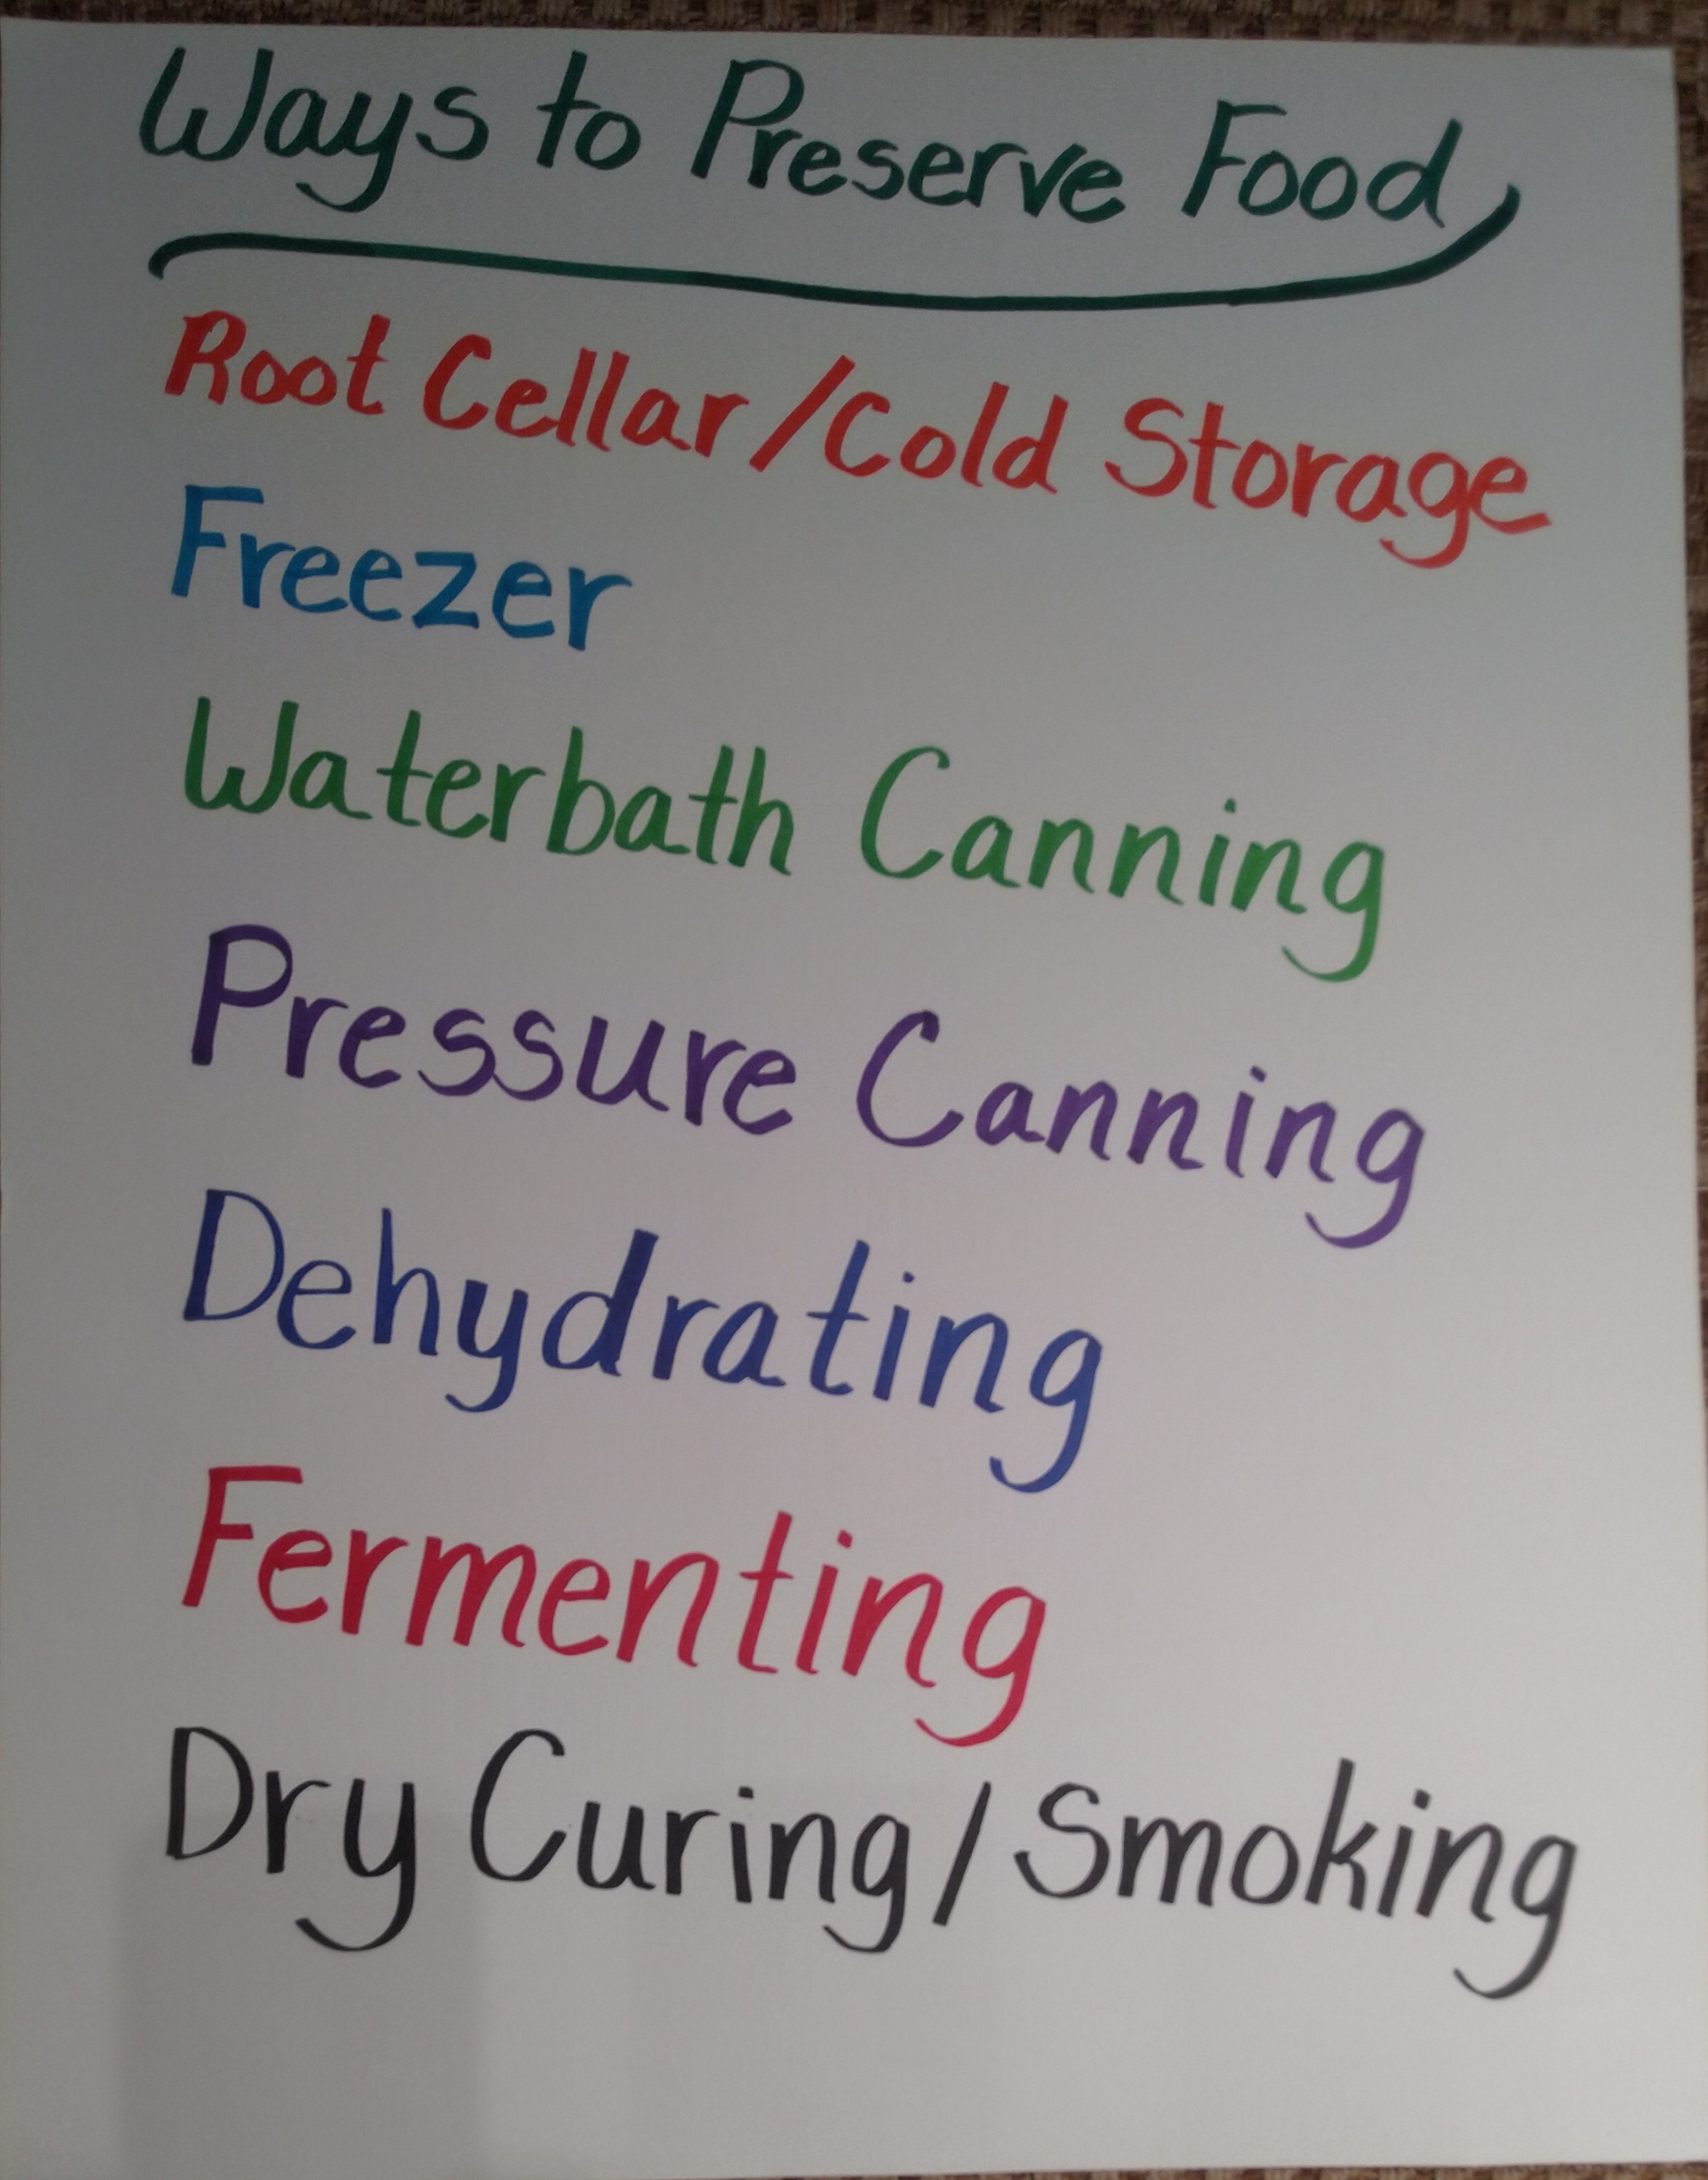 Ways to Preserve Food
Root Cellar/Cold Storage
Freezer
Waterbath Canning
Pressure Canning
Dehydrating
Fermenting
Dry Curing/Smoking